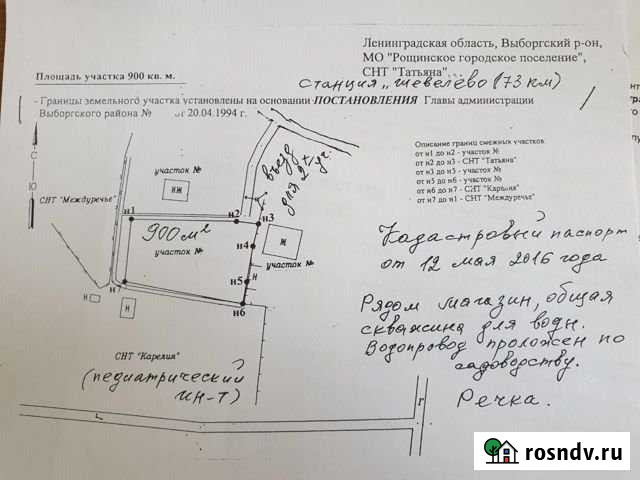 Ленинградская область, Выборгский р-он,
МО "Рощинское городское поселение",
СНТ "Татьяна"
Площадь участка 900 кв. м.
станция „Шевелёво (73 км)
- Границы земельного участка установлены на основании ПОСТАНОВЛЕНИЯ Главы администрации
Выборгского района № от 20.04.1994 г.
С
Ю
Описание границ смежных участков
от н1 до н2 - участок №
от н2 до н3 - СНТ "Татьяна"
от н3 до н5 - участок №
от н5 до н6 - участок №
от н6 до н7 - СНТ "Карелия"
от н7 до н1 - СНТ "Междуречье"
въезд
для 2х
уч.
участок №
КЖ
СНТ "Междуречье"
н1
н2
н3
900 м²
Ж
н4
участок №
н5
Н
н7
н6
Н
Н
Кадастровый паспорт
от 12 мая 2016 года
Рядом магазин, общая
скважина для воды.
Водопровод проложен по
садоводству.
Речка.
СНТ "Карелия"
(педиатрический
ин-т)
г
rosndv.ru